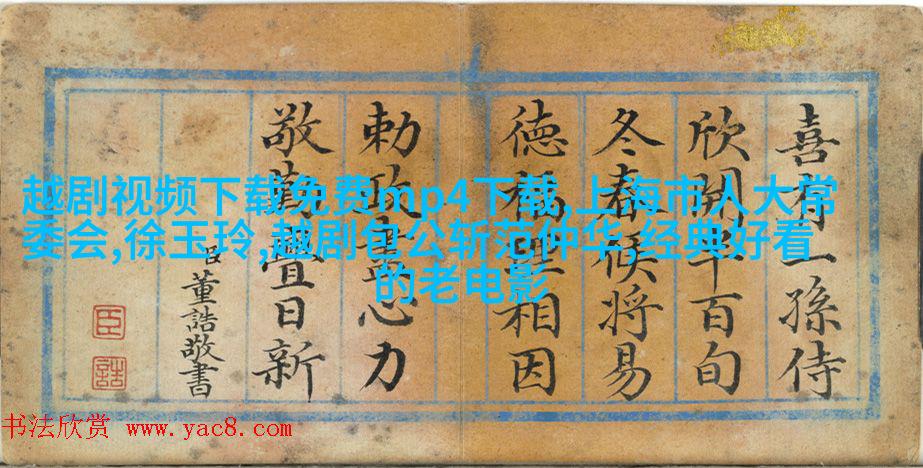 喜有一孫侍
欣開百旬
冬春候將易
德福相因
勅政盡心力
敬疊日新
臣董誥敬書
臣
誥
越剧视频下载免费mp4下载,上海市人大常
委会,徐玉玲,越剧包公斩范仲华,经典好看
的老电影
书法欣赏 www.yac8.com